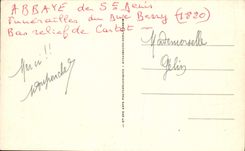 ABBAYE de St Denis
Funérailles du Duc Berry (1820)
Bas relief de Cortot
Mademoiselle
Gélin